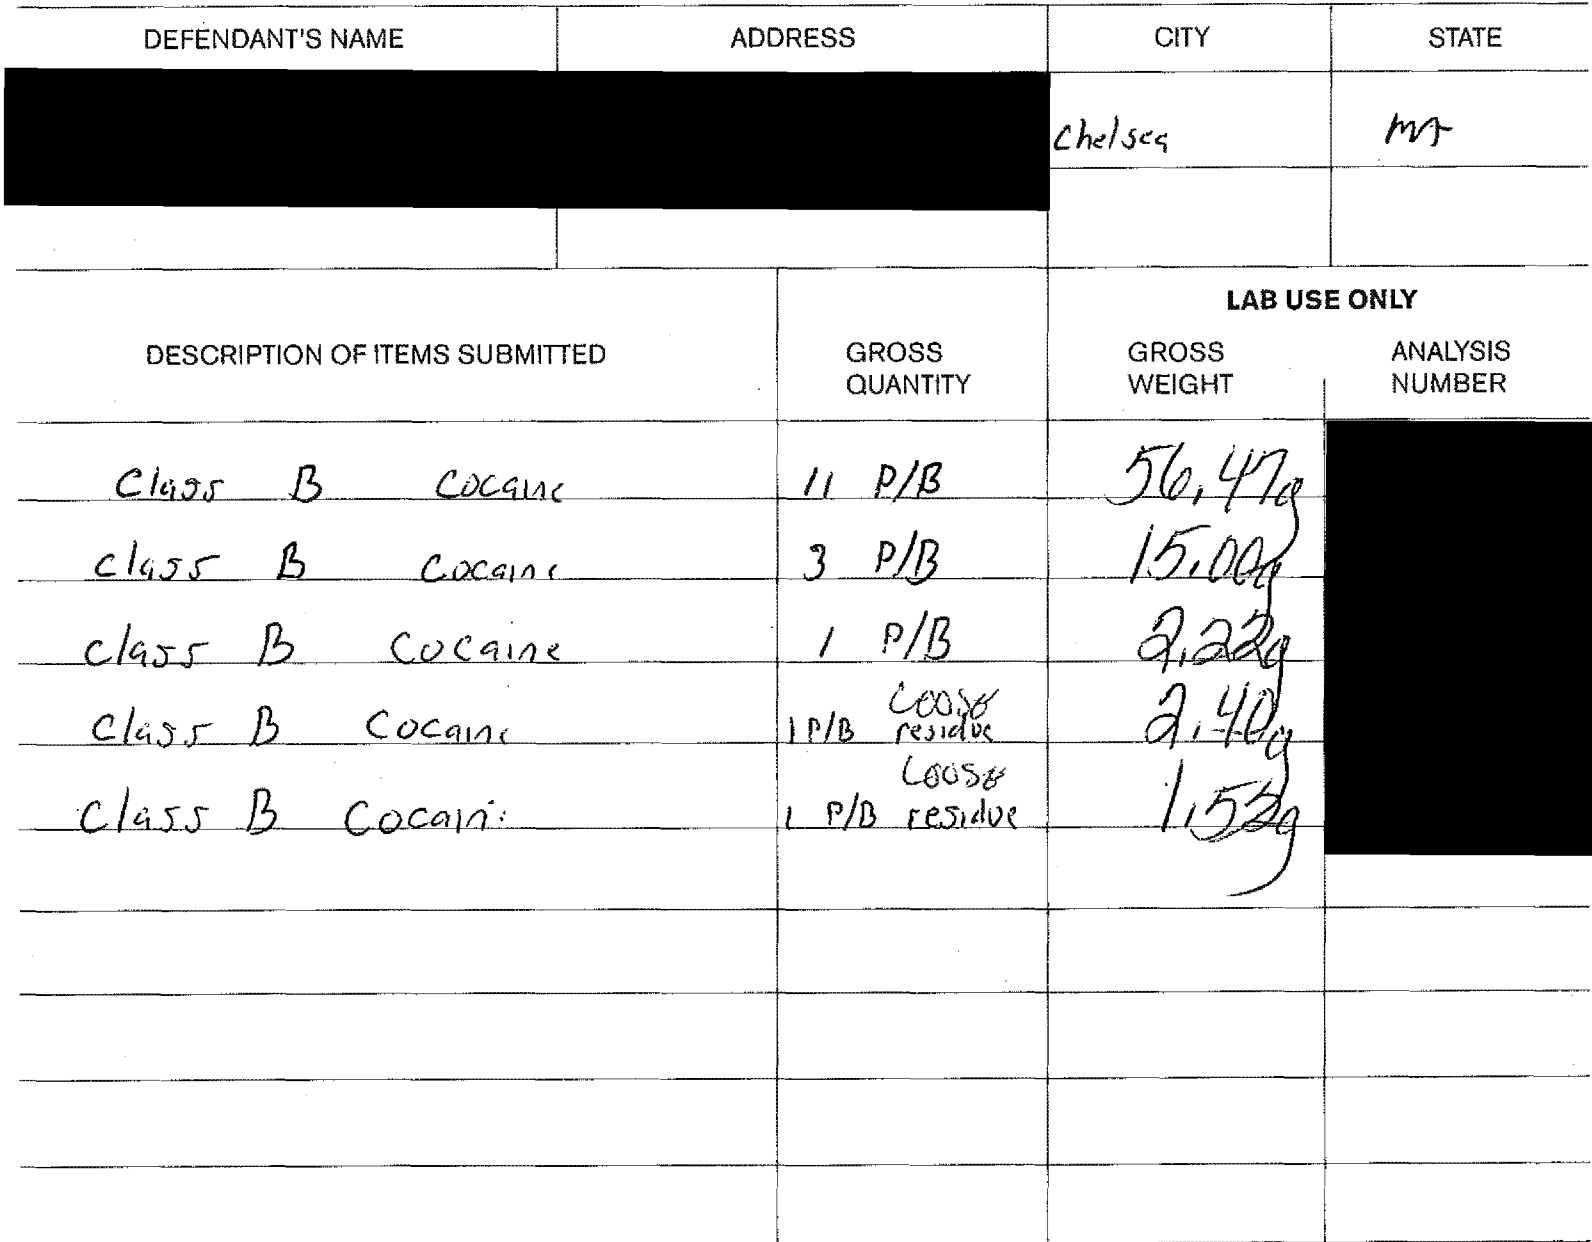 DEFENDANT'S NAME ADDRESS CITY STATE
Chelsea MA
LAB USE ONLY
DESCRIPTION OF ITEMS SUBMITTED GROSS QUANTITY GROSS WEIGHT ANALYSIS NUMBER
Class B Cocaine 11 P/B 56.47g
Class B Cocaine 3 P/B 15.00g
Class B Cocaine 1 P/B 2.22g
Class B Cocaine 1 P/B Loose residue 2.40g
Class B Cocaine 1 P/B Loose residue